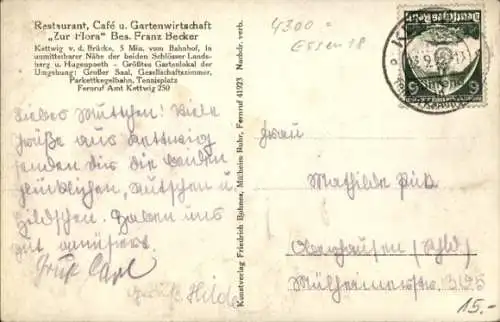 Restaurant, Café u. Gartenwirtschaft
„Zur Flora“ Bes. Franz Becker
Kettwig v. d. Brücke, 5 Min. vom Bahnhof, in
unmittelbarer Nähe der beiden Schlösser Lands-
berg u. Hugenpoeth - Größtes Gartenlokal der
Umgebung: Großer Saal, Gesellschaftszimmer,
Parkettkegelbahn, Tennisplatz
Fernruf Amt Kettwig 250
Lieber Muttchen! Viele
Grüße aus Kettwig
senden dir die beiden
glücklichen, Mutschen u.
Hildchen. Haben uns
gut amüsiert.
Gruß Carl
Gruß Hilde
Kunstverlag Friedrich Bohnes, Mülheim Ruhr, Fernruf 41923 Nachdr. verb.
4300 =
Essen 18
Deutsches Reich
6
Frau
Mathilde
Oberhausen (Rhld)
Mülheimerstr.
15.-